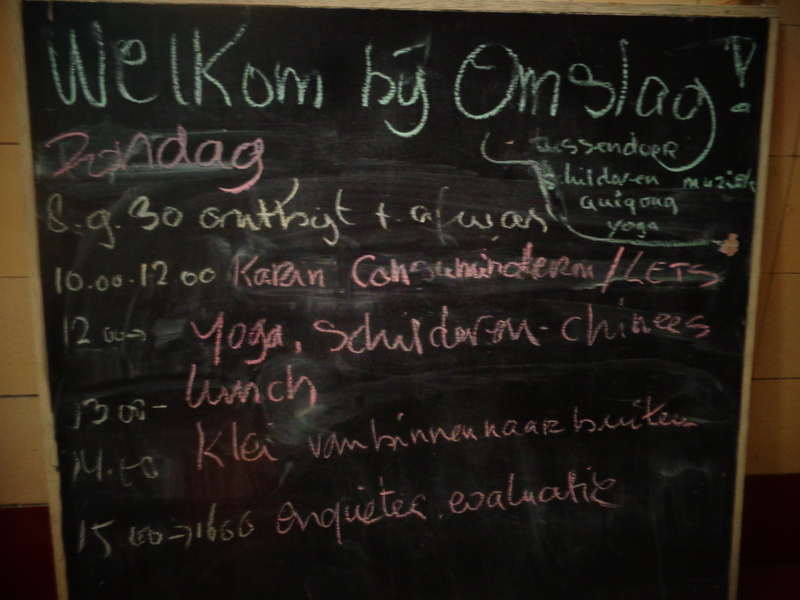 Welkom bij Omslag!
Zondag
tussendoor
schilderen muziek
Quigong
yoga
8.9.30 ontbijt + afwas
10.00-12.00 Karan Consuminderen / LETS
12.00→ yoga, schilderen - chinees
lunch
13.00-
14.00 Klei van binnen naar buiten
15.00→1600 enquetes, evaluatie